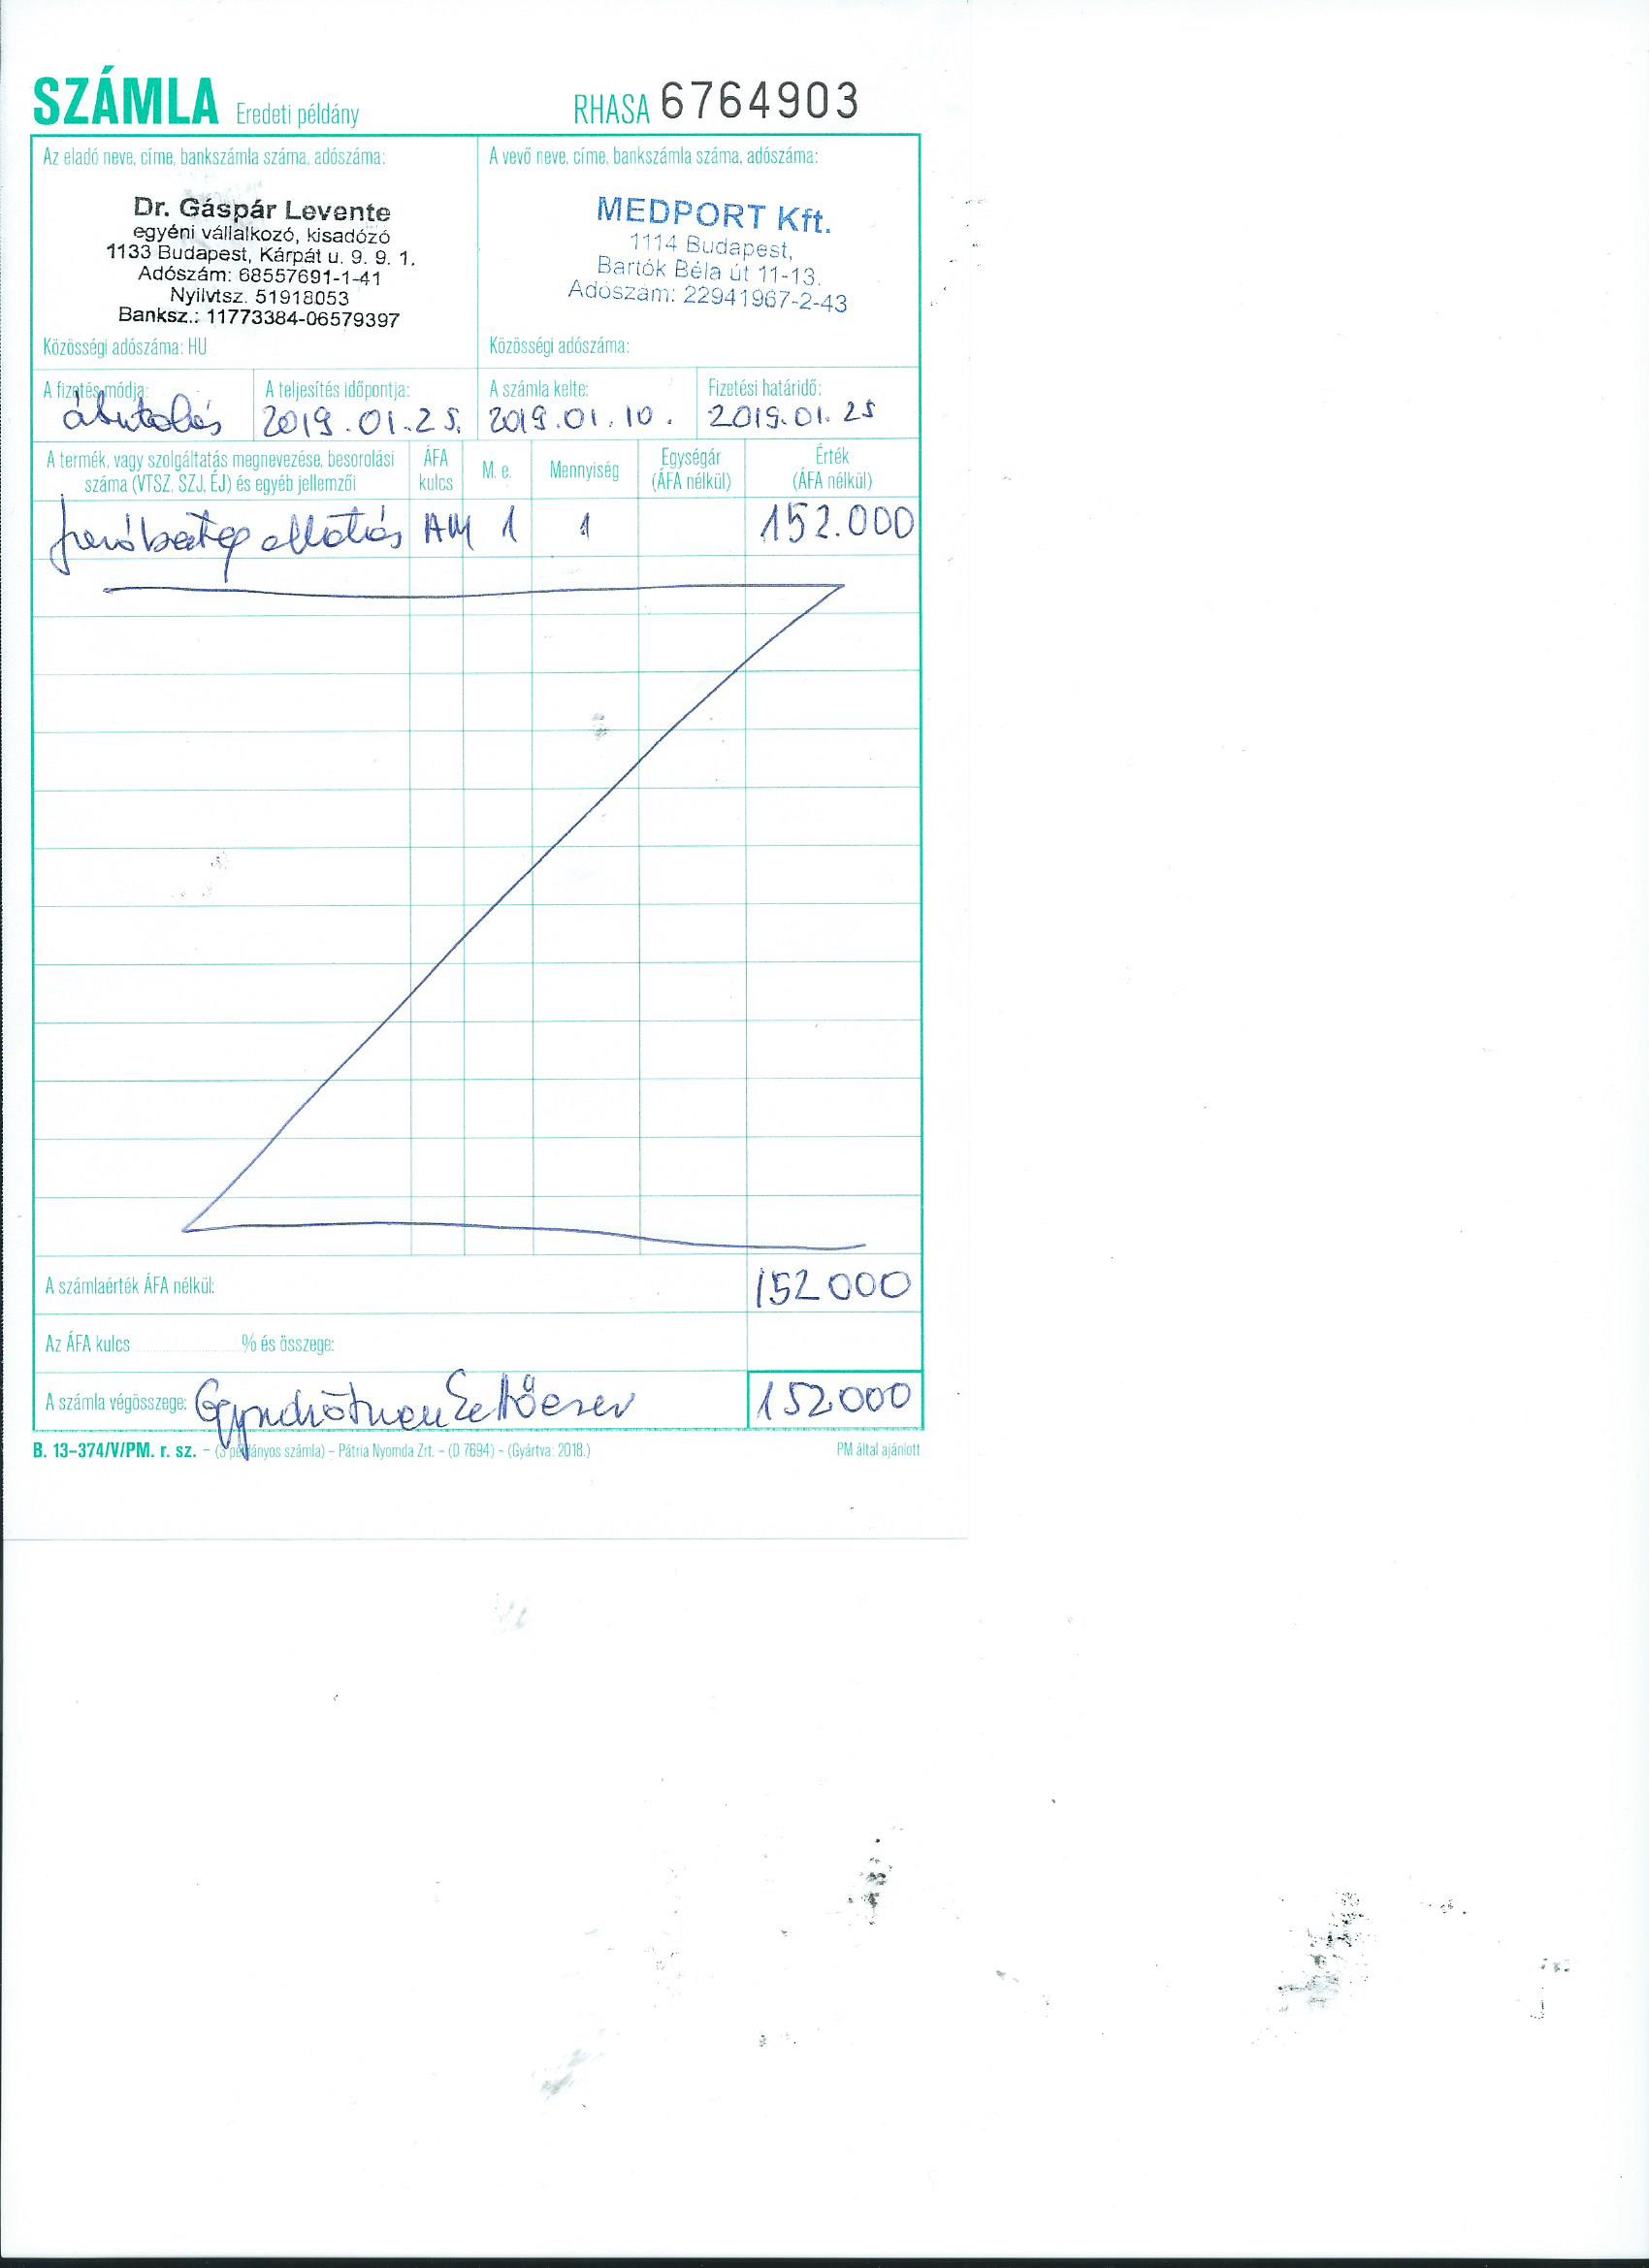 SZÁMLA Eredeti példány RHASA 6764903
Az eladó neve, címe, bankszámla száma, adószáma:
Dr. Gáspár Levente
egyéni vállalkozó, kisadózó
1133 Budapest, Kárpát u. 9. 9. 1.
Adószám: 68557691-1-41
Nyilvtsz. 51918053
Banksz.: 11773384-06579397
Közösségi adószáma: HU
A vevő neve, címe, bankszámla száma, adószáma:
MEDPORT Kft.
1114 Budapest,
Bartók Béla út 11-13.
Adószám: 22941967-2-43
Közösségi adószáma:
A fizetés módja: A teljesítés időpontja: A számla kelte: Fizetési határidő:
átutalás 2019.01.25. 2019.01.10. 2019.01.25
A termék, vagy szolgáltatás megnevezése, besorolási száma (VTSZ, SZJ, ÉJ) és egyéb jellemzői
ÁFA kulcs
M. e.
Mennyiség
Egységár (ÁFA nélkül)
Érték (ÁFA nélkül)
járóbeteg ellátás AM 1 1 152.000
A számlaérték ÁFA nélkül: 152000
Az ÁFA kulcs % és összege:
A számla végösszege: 152000
B. 13-374/V/PM. r. sz. – (3 példányos számla) – Pátria Nyomda Zrt. – (D 7694) – (Gyártva: 2018.) PM által ajánlott